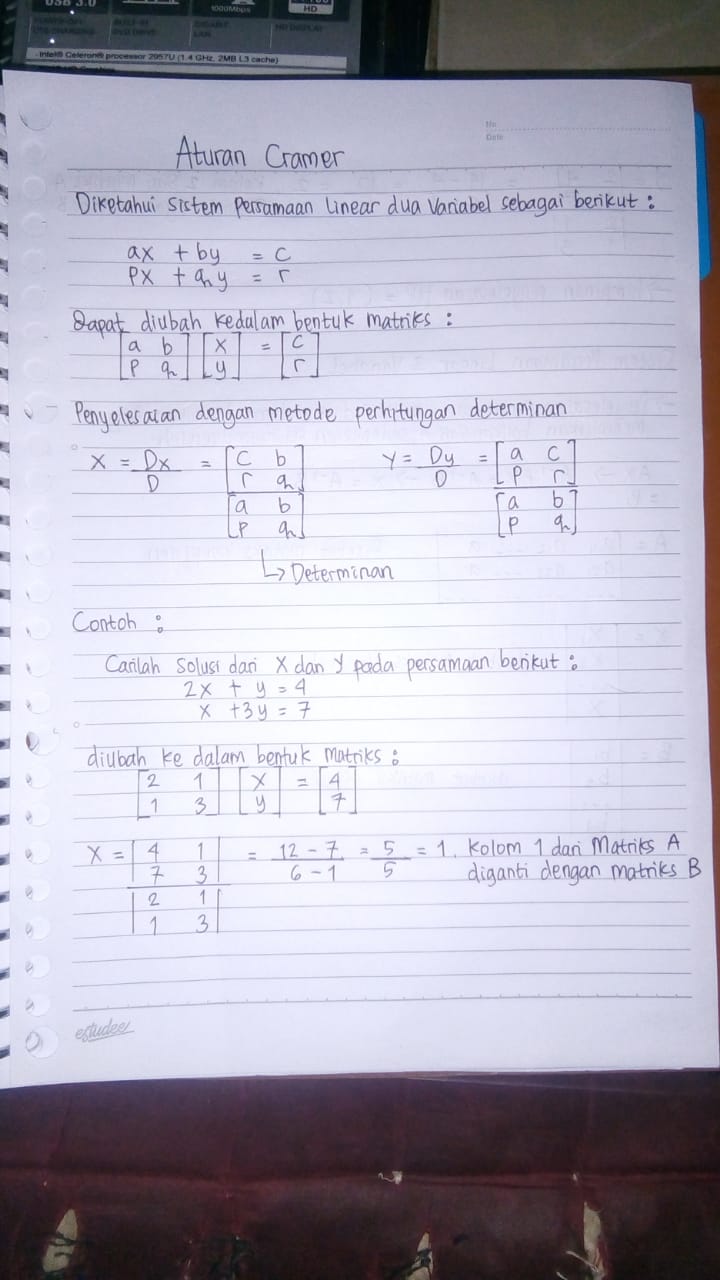 USB 3.0
1000Mbps
HD
- Intel® Celeron® processor 2957U (1.4 GHz, 2MB L3 cache)
No
Date
Aturan Cramer
Diketahui sistem persamaan linear dua variabel sebagai berikut :
ax + by = c
px + qy = r
Dapat diubah kedalam bentuk matriks :
[a b] [x] = [c]
[p q] [y] [r]
Penyelesaian dengan metode perhitungan determinan
X = Dx/D = [c b] Y = Dy/D = [a c]
[r q] [p r]
[a b] [a b]
[p q] [p q]
↳ Determinan
Contoh :
Carilah solusi dari x dan y pada persamaan berikut :
2x + y = 4
x + 3y = 7
diubah ke dalam bentuk matriks :
[2 1] [x] = [4]
[1 3] [y] [7]
X = |4 1| = 12 - 7 / 6 - 1 = 5/5 = 1. Kolom 1 dari Matriks A
|7 3| diganti dengan matriks B
|2 1|
|1 3|
estudee